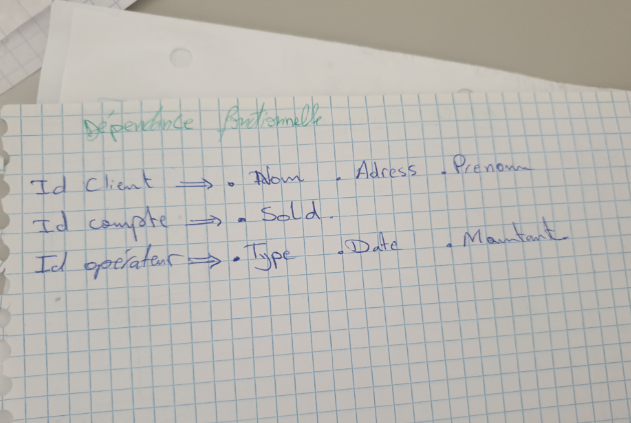 Dépendance fontionnelle
Id Client ⇒ . Nom . Adress . Prenom
Id compte ⇒ . Sold.
Id opérateur ⇒ . Type . Date . Maintant